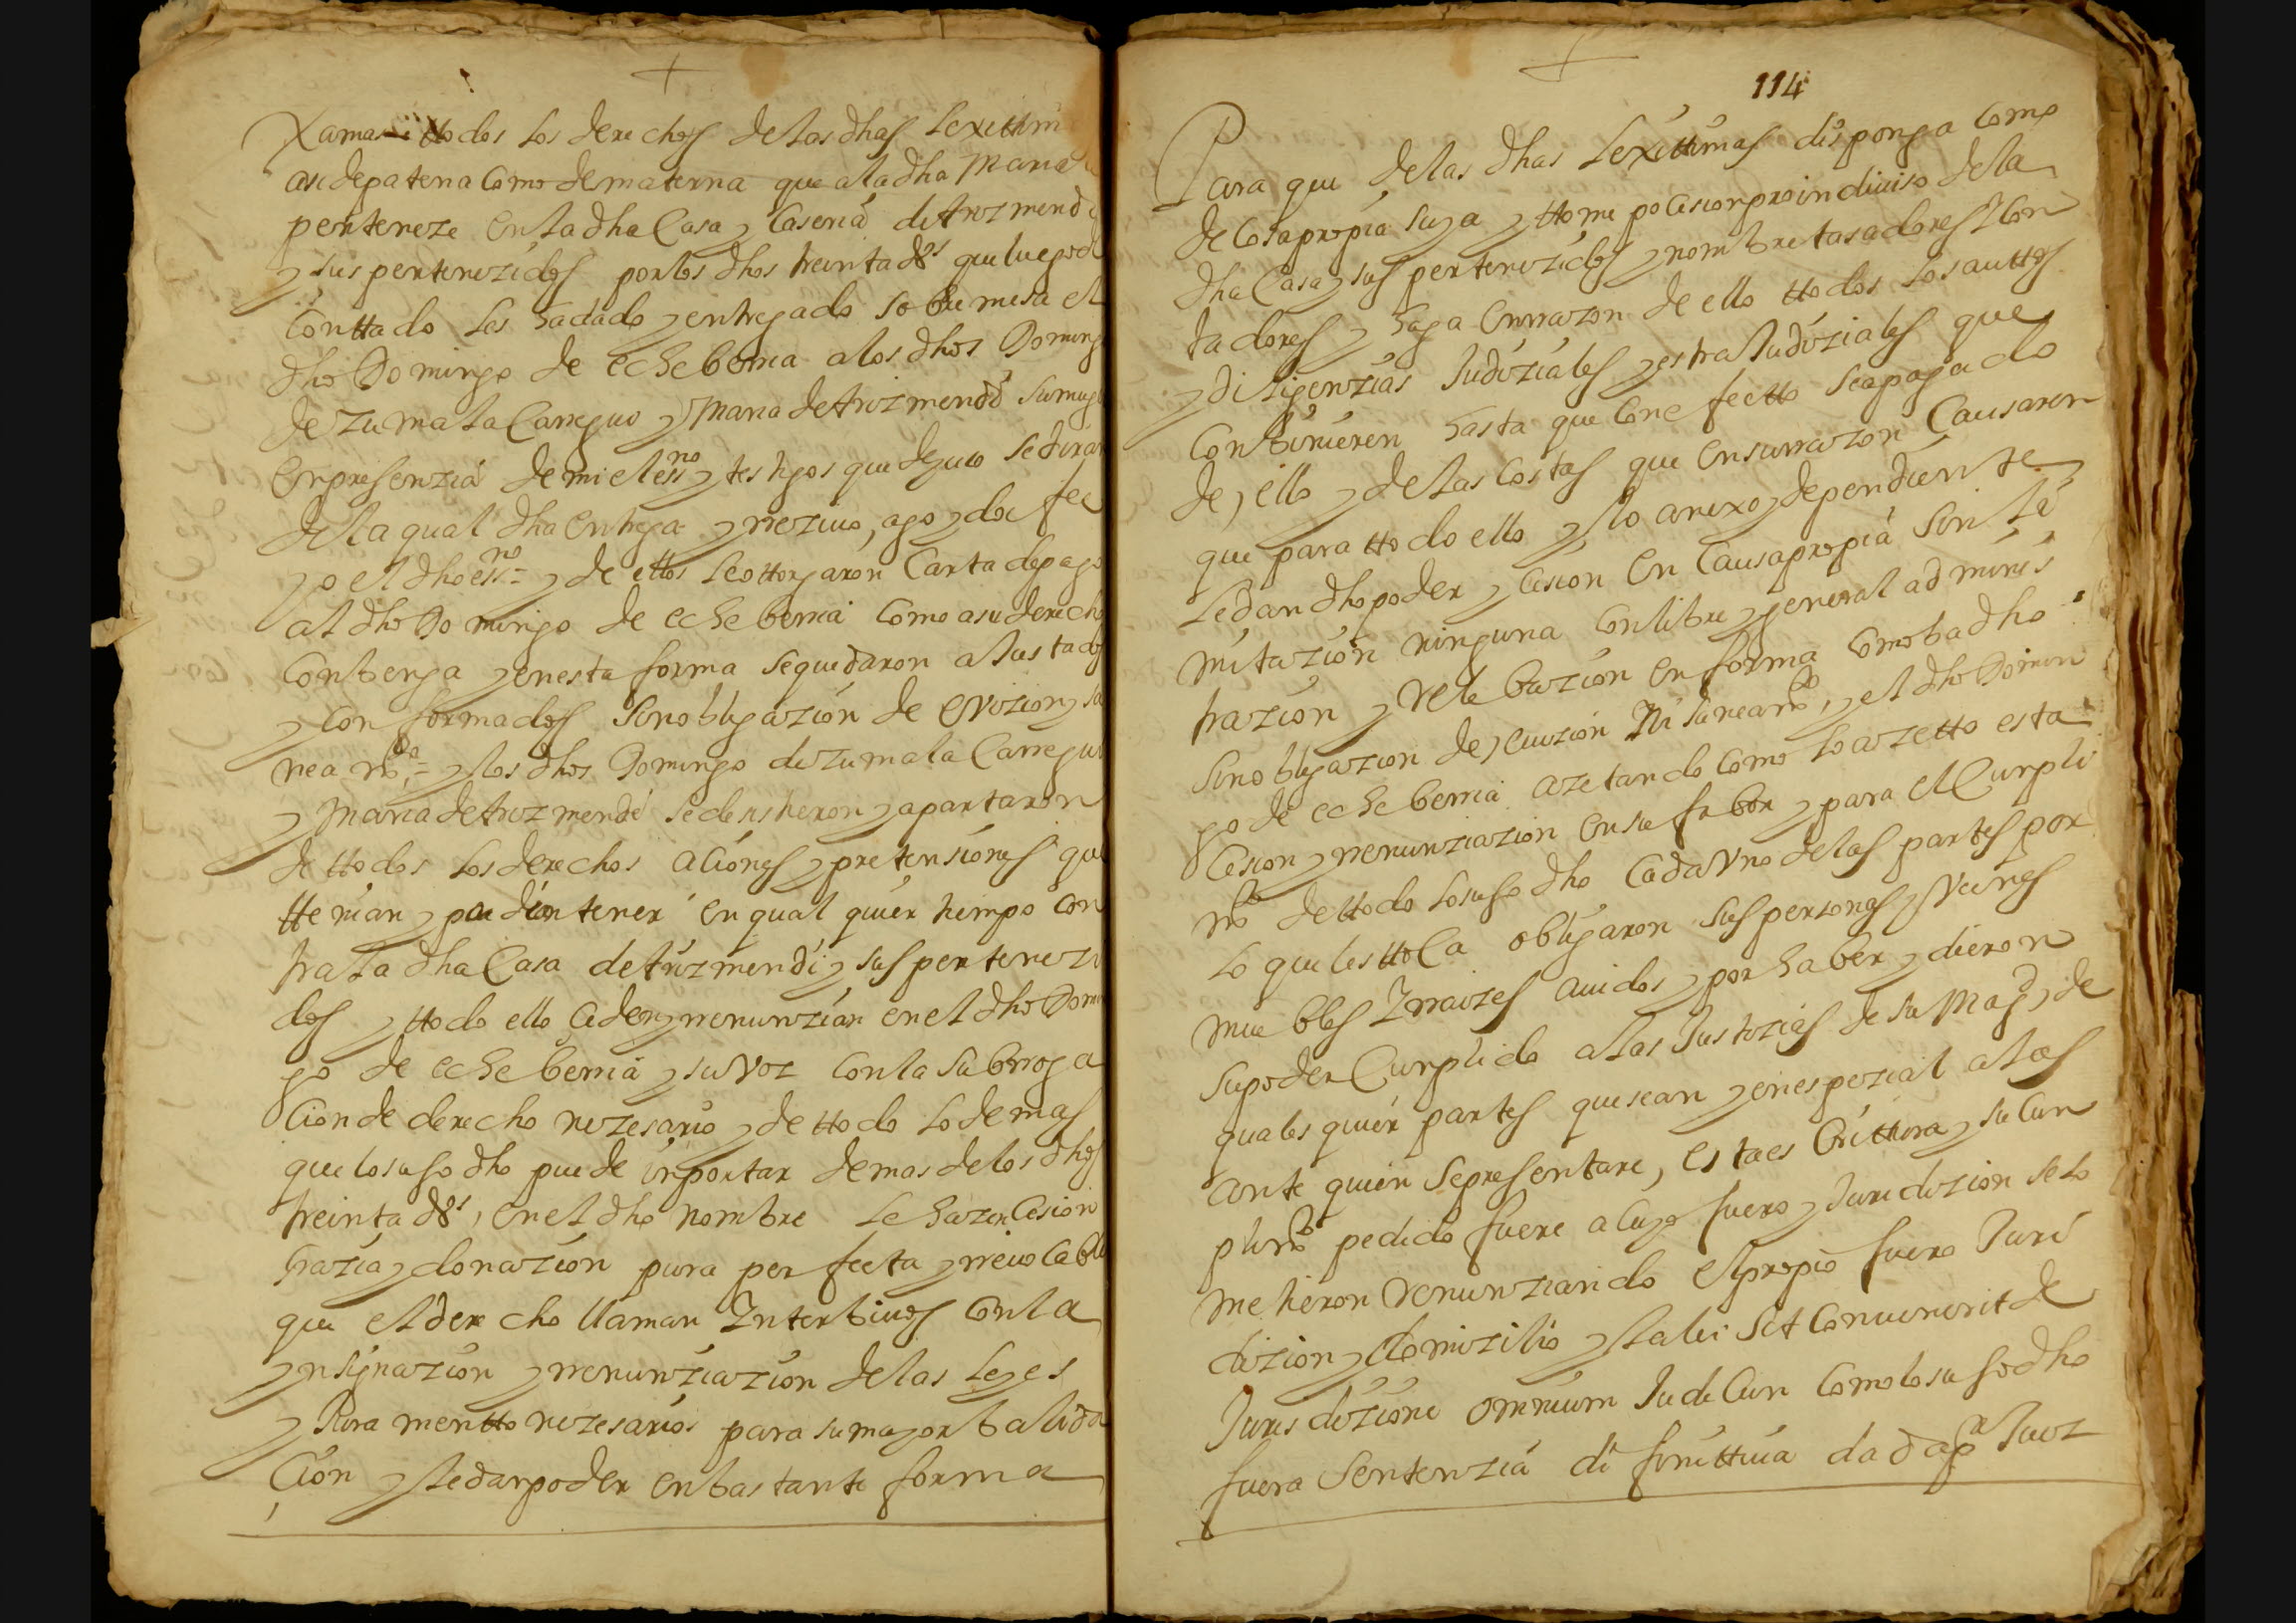 Xamas ttodos los derechos de las dhas lexittim
asi de paterna como de materna que a la dha Maria
perteneze en la dha Casa y Caseria de Arizmendi
y sus pertenezidos por los dhos treinta ds que luego de
Conttado les ha dado y entregado sobre mesa el
dho Domingo de echeberria a los dhos Doming
de Zumalacarregui y Maria de Arizmendi su mug
en presenzia de mi el essno y testigos que de yuso se diran
de la qual dha entrega y rrezivo, ago y doi fee
yo el dho essno = y de ellos le ottorgaron Carta de pago
al dho Domingo de echeberria Como a su derecho
Conbenga y en esta forma se quedaron a Justados
y conformados sin obligazion de evizion y sa
neamto = y los dhos Domingo de Zumalacarregui
y Maria de Arizmendi se desistieron y apartaron
de ttodos los derechos aciones y pretensiones que
ttenian y podian tener en qual quier tiempo Con
tra la dha Casa de Arizmendi y sus pertenezi
dos y ttodo ello Ceden y rrenunzian en el dho Domin
go de echeberria y su voz Con la Subrroga
cion de derecho nezesario y de ttodo lo demas
que lo suso dho puede inportar demas de los dhos
treinta ds, en el dho nombre le hazen Cesion
grazia y donazion pura perfecta y rrevocable
que el derecho llaman Interbivos Con la
ynsignazion y rrenunziazion de las leyes
y Juramentto nezesarios para su mayor balida
cion y le dan poder en bastante forma
114
Para que de las dhas lexittimas disponga Como
de Cosa propia suya y ttome pocesion proindiviso de la
dha Casa y sus pertenezidos y nombre tasadores Con
tadores y haga en rrazon de ello ttodos los auttos
y diligenzias Judiziales y estraJudiziales que
Conbinieren hasta que Con efectto sea pagado
de ello y de las Costas que en su rrazon Causaren
que para ttodo ello y lo anexo y dependiente
le dan dho poder y Cesion en Causa propia sin li
mitazion ninguna Con libre y general adminis
trazion y rrelebazion en forma Como ba dho
sin obligazion de, evizion Ni saneamto, y el dho Domin
go de echeberria azetando Como lo azetto esta
Cesion y rrenunziazion en su fabor y para el Cunpli
mto de ttodo lo suso dho Cada Uno de las partes por
lo que les ttoca obligaron sus personas y Vienes
muebles I rraizes avidos y por haber y dieron
su poder Cunplido a las Justizias de su Magd, de
quales quier partes que sean y en espezial a las
ante quien se presentare, esta escrittura y su Cun
plimto pedido fuere a Cuyo fuero y Juridizion se so
metieron renunziando el propio fuero Juri
dizion y domizilio y la lei Sit Convenerit de
Jurisdizione omnium Judicun Como lo suso dho
fuera Sentenzia difinittiva dada pr Juez